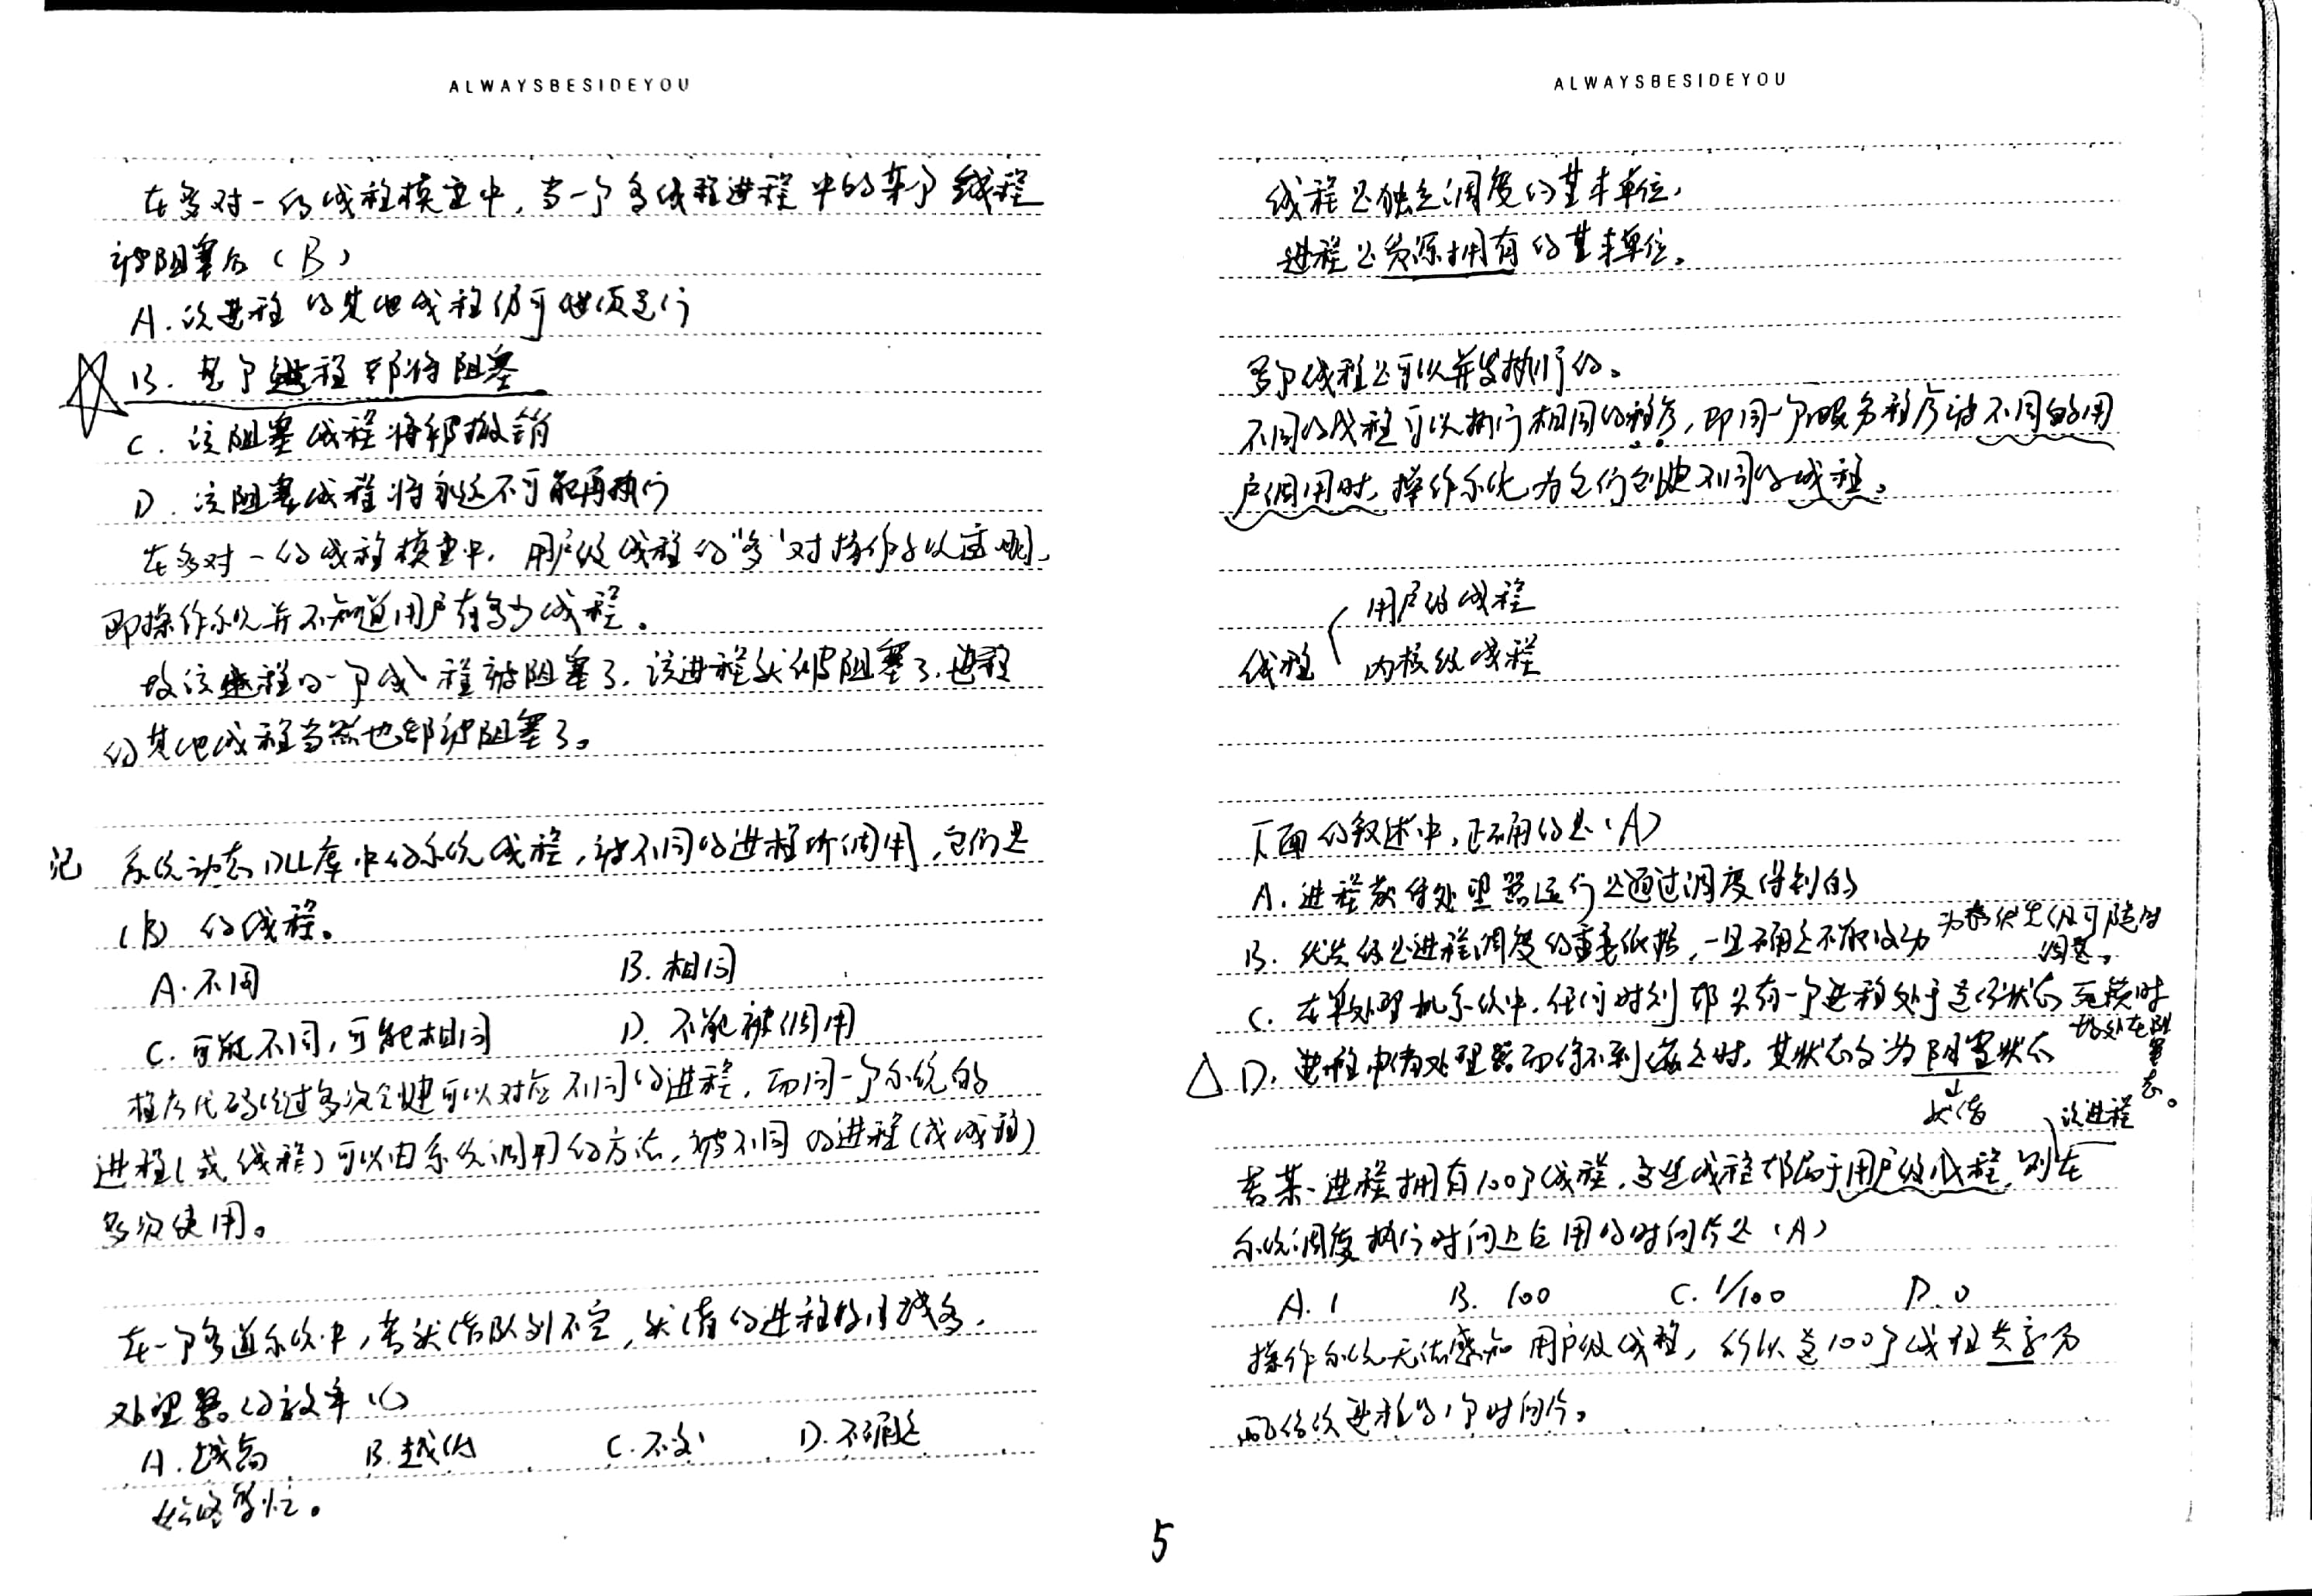 ALWAYSBESIDEYOU
在多对一的线程模型中,当一个多线程进程中的某个线程
被阻塞后(B)
A.该进程的其他线程仍可继续运行
B.整个进程都将阻塞
C.该阻塞线程将被撤销
D.该阻塞线程将永远不可能再执行
在多对一的线程模型中,用户级线程的"多"对操作系统透明,
即操作系统并不知道用户有多少线程。
故该进程的一个线程被阻塞了,该进程就被阻塞了,进程
的其他线程当然也都被阻塞了。
记 系统动态DLL库中的系统线程,被不同的进程所调用,它们是
(B)的线程。
A.不同 B.相同
C.可能不同,可能相同 D.不能被调用
程序代码经过多次创建可以对应不同的进程,而同一个系统的
进程(或线程)可以由系统调用的方法,被不同的进程(或线程)
多次使用。
在一个多道系统中,若就绪队列不空,就绪的进程数目越多,
处理器的效率(C)
A.越高 B.越低 C.不变 D.不确定
始终繁忙。
ALWAYSBESIDEYOU
线程是独立调度的基本单位,
进程是资源拥有的基本单位。
多个线程是可以并发执行的。
不同的线程可以执行相同的程序,即同一个服务程序被不同的用
户调用时,操作系统为它们创建不同的线程。
线程 用户级线程
内核级线程
下面的叙述中,正确的是(A)
A.进程获得处理器运行是通过调度得到的
B.优先级是进程调度的重要依据,一旦确定不能改动 力态优先级可随时
调整。
C.在单处理机系统中,任何时刻都只有一个进程处于运行状态 死锁时
均处在阻塞态。
D.进程申请处理器而得不到满足时,其状态变为阻塞状态
就绪
该进程
若某一进程拥有100个线程,这些线程都属于用户级线程,则在
系统调度执行时间上占用的时间片是(A)
A.1 B.100 C.1/100 D.0
操作系统无法感知用户级线程,所以这100个线程共享分
配给该进程的1个时间片。
5